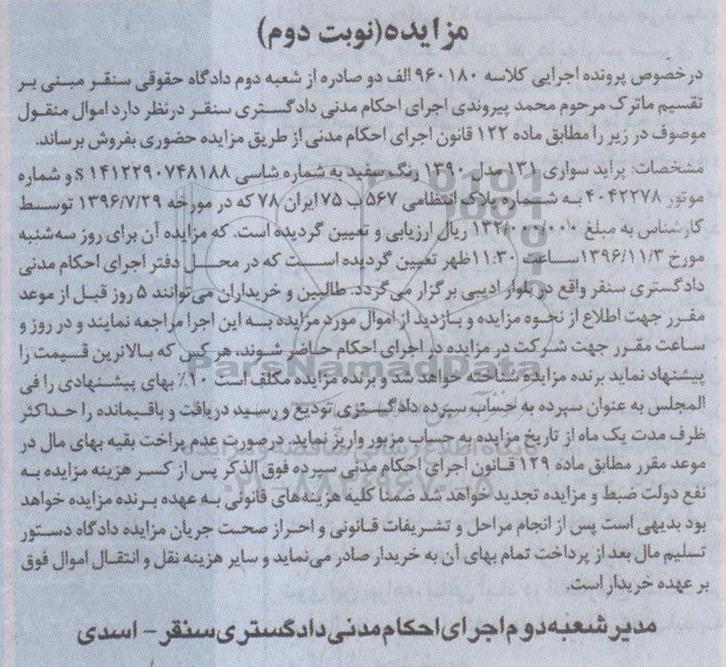 مزایده(نوبت دوم)
درخصوص پرونده اجرایی کلاسه ۹۶۰۱۸۰ الف دو صادره از شعبه دوم دادگاه حقوقی سنقر مبنی بر
تقسیم ماترک مرحوم محمد پیروندی اجرای احکام مدنی دادگستری سنقر درنظر دارد اموال منقول
موصوف در زیر را مطابق ماده ۱۲۲ قانون اجرای احکام مدنی از طریق مزایده حضوری بفروش برساند.
مشخصات: پراید سواری ۱۳۱ مدل ۱۳۹۰ رنگ سفید به شماره شاسی S۱۴۱۲۲۹۰۷۴۸۱۸۸ و شماره
موتور ۴۰۴۲۲۷۸ به شماره پلاک انتظامی ۵۶۷ ب ۷۵ ایران ۷۸ که در مورخه ۱۳۹۶/۷/۲۹ توسط
کارشناس به مبلغ ۱۳۲/۰۰۰/۰۰۰ ریال ارزیابی و تعیین گردیده است. که مزایده آن برای روز سه‌شنبه
مورخ ۱۳۹۶/۱۱/۳ ساعت ۱۱:۳۰ ظهر تعیین گردیده است که در محل دفتر اجرای احکام مدنی
دادگستری سنقر واقع در بلوار ادیبی برگزار می‌گردد. طالبین و خریداران می‌توانند ۵ روز قبل از موعد
مقرر جهت اطلاع از نحوه مزایده و بازدید از اموال مورد مزایده به این اجرا مراجعه نمایند و در روز و
ساعت مقرر جهت شرکت در مزایده در اجرای احکام حاضر شوند. هر کس که بالاترین قیمت را
پیشنهاد نماید برنده مزایده شناخته خواهد شد و برنده مزایده مکلف است ۱۰٪ بهای پیشنهادی را فی
المجلس به عنوان سپرده به حساب سپرده دادگستری تودیع و رسید دریافت و باقیمانده را حداکثر
ظرف مدت یک ماه از تاریخ مزایده به حساب مزبور واریز نماید. درصورت عدم پراخت بقیه بهای مال در
موعد مقرر مطابق ماده ۱۲۹ قانون اجرای احکام مدنی سپرده فوق الذکر پس از کسر هزینه مزایده به
نفع دولت ضبط و مزایده تجدید خواهد شد ضمنا کلیه هزینه‌های قانونی به عهده برنده مزایده خواهد
بود بدیهی است پس از انجام مراحل و تشریفات قانونی و احراز صحت جریان مزایده دادگاه دستور
تسلیم مال بعد از پرداخت تمام بهای آن به خریدار صادر می‌نماید و سایر هزینه نقل و انتقال اموال فوق
بر عهده خریدار است.
مدیر شعبه دوم اجرای احکام مدنی دادگستری سنقر – اسدی
ParsNamadData